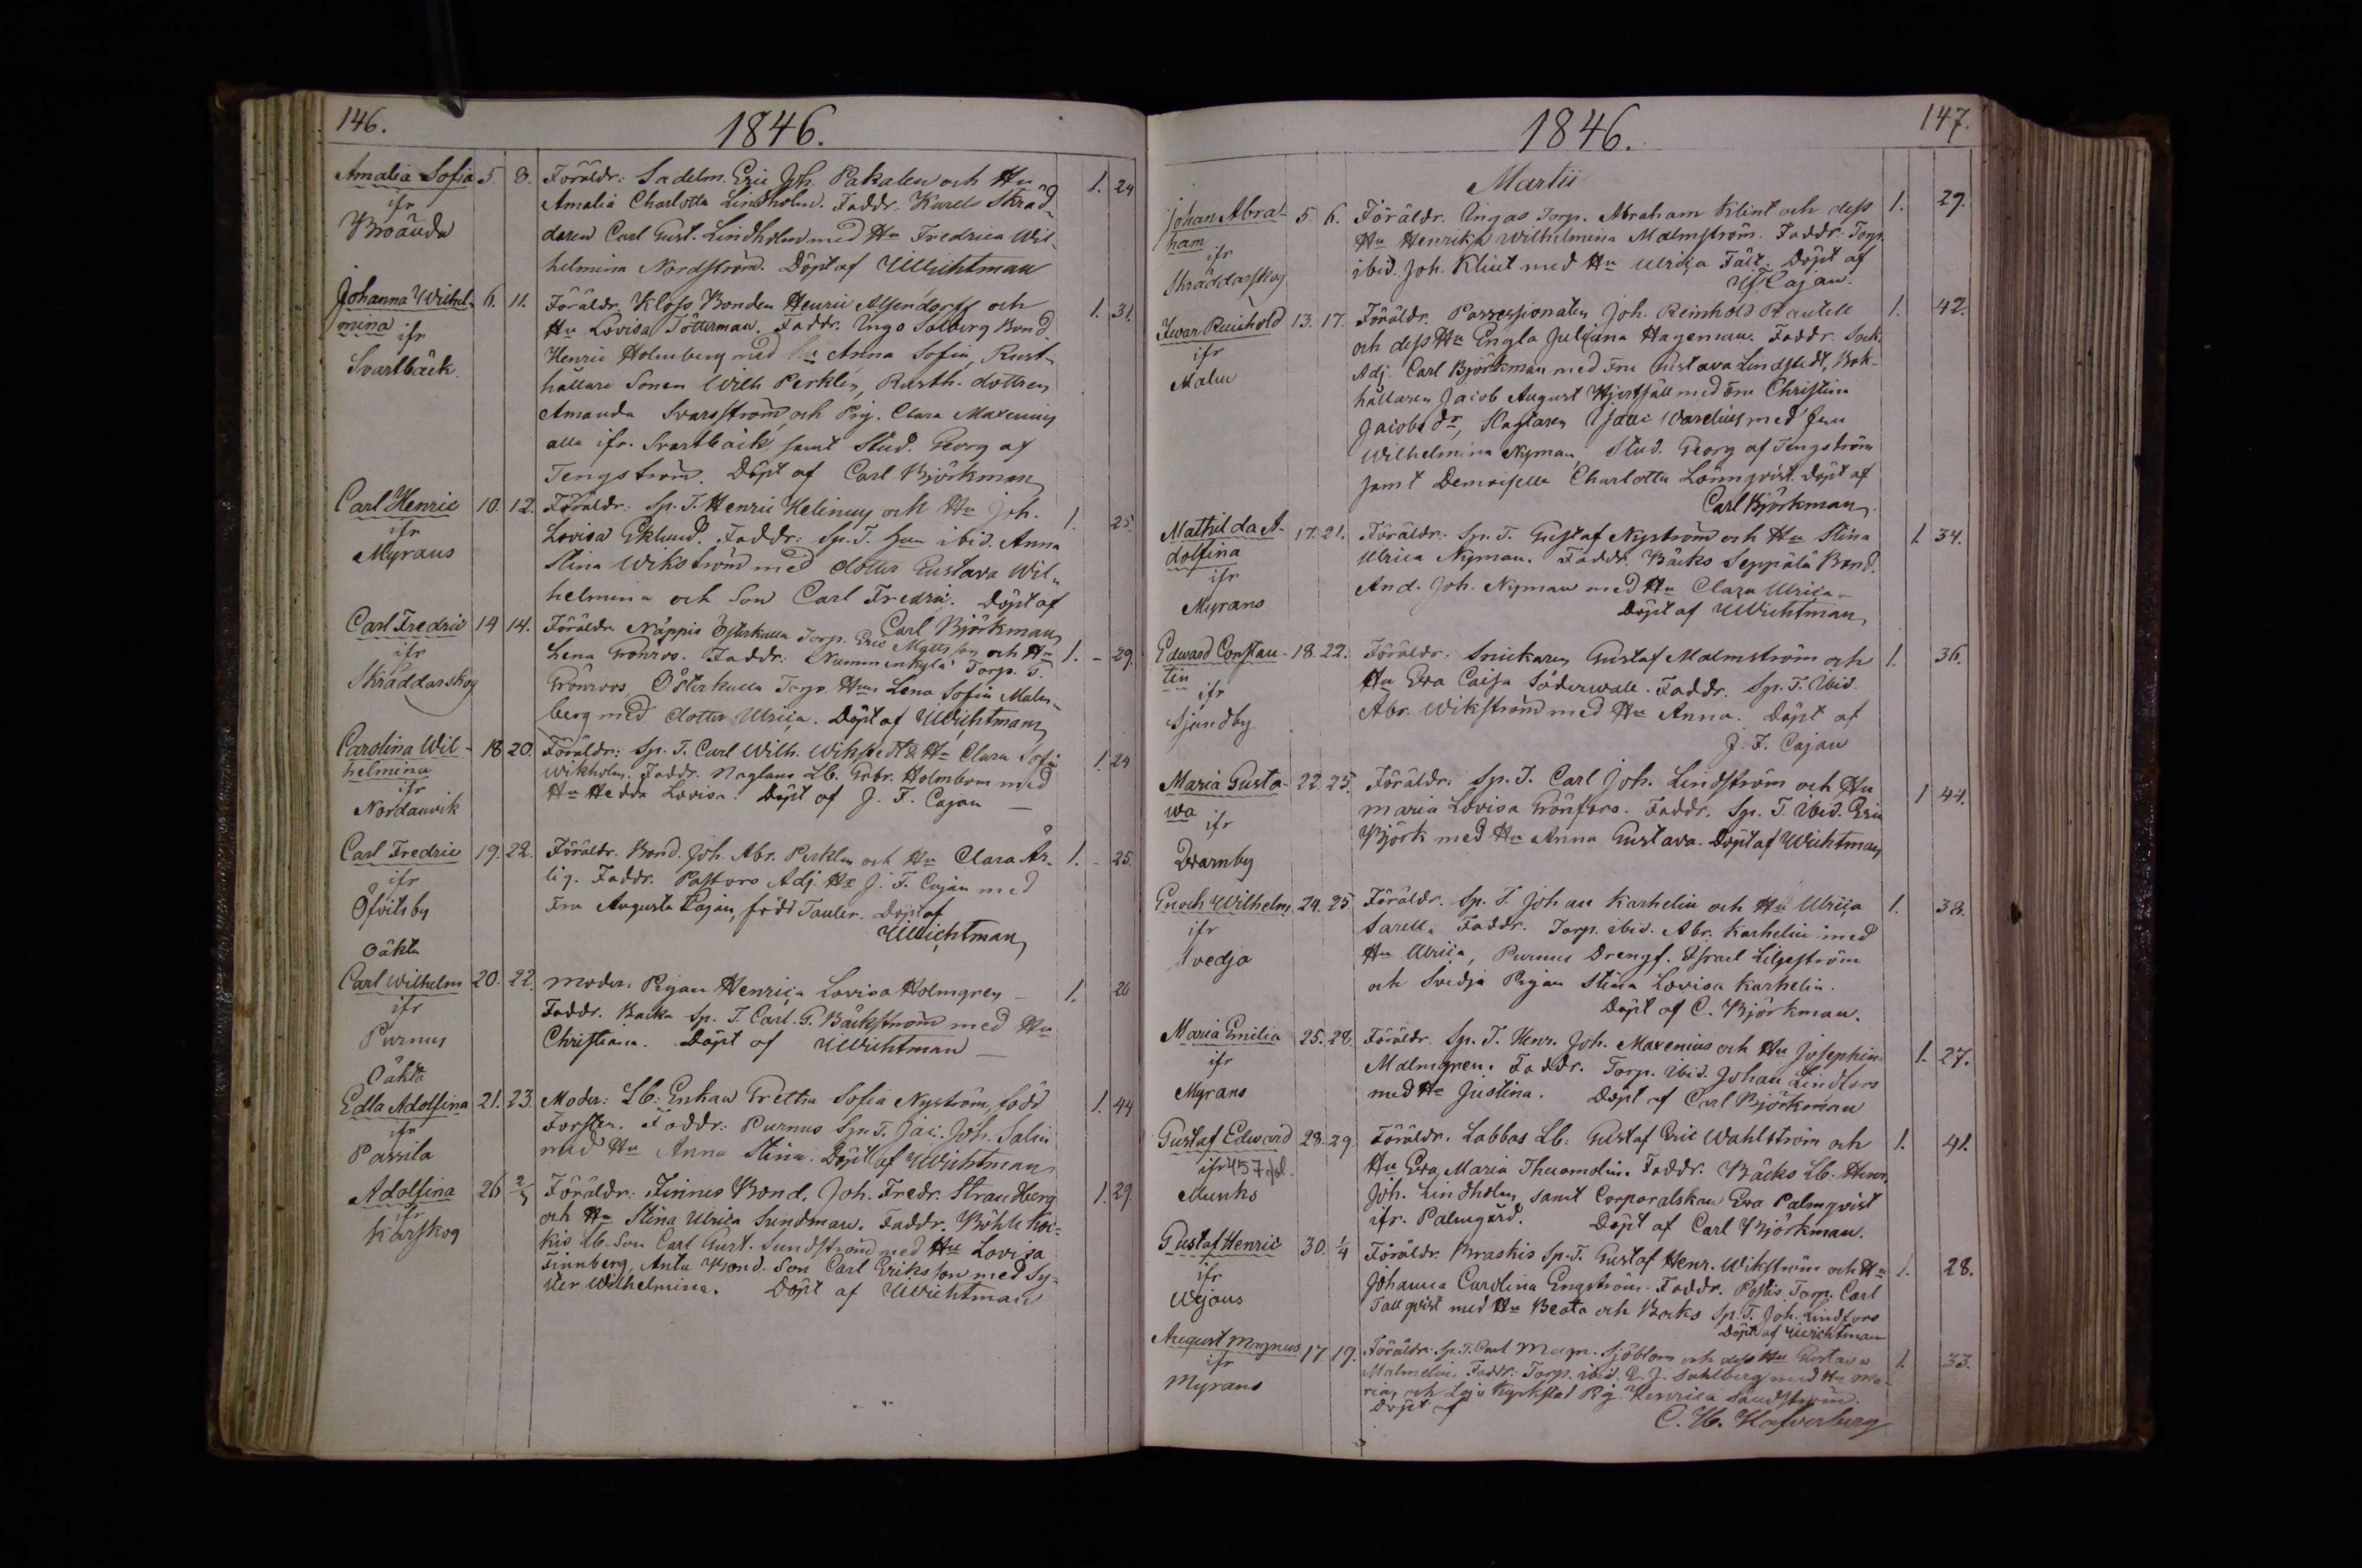 146.
1846.
Amalia Sofia 5. 8. Föräldr: Sadelm. Eric Joh. Pakalen och Hu 1. 24
ifr Amalia Charlotta Lindholm. Faddr. Karelo Skräd-
Broända daren Carl Gust. Lindholm med Hu Fredrica Wil-
helmina Nordström. Döpt af UWichtman
Johanna Wilhel- 6. 11. Föräldr. Kloss Bonden Henric Alsendorff och 1. 31.
mina ifr Hu Lovisa Tötterman. Faddr. Ingo Solberg Bond.
Svartbäck. Henric Holmberg med Hu Anna Sofia, Rust-
hållare Sonen Wilh Perklén, Rusth. dottren
Amanda Svarsström och Pig. Clara Maxenius
alla ifr. Svartbäck, samt Stud. Georg af
Tengström. Döpt af Carl Björkman
Carl Henric 10. 12. Föräldr: Sp. T. Henric Helinuy och Hu Joh. 1. 25
ifr Lovisa Eklund. Faddr: Sp. T. ibid. Anna
Myrans Stina Wikström med dotter Gustava Wil-
helmina och Son Carl Fredric. Döpt af
Carl Björkman
Carl Fredric 14 14. Föräldr. Näppis Österkulla Torp. Eric Mattsson och Hu 1. - 29.
ifr Lena Grönroos. Faddr: Numminkylä Torp. T.
Skräddarskog Grönroos, Österkulla Torp. Hus. Lena Sofia Malm-
berg med dotter Ulrica. Döpt af UWichtman
Carolina Wil- 18 20. Föräldr: Sp. T. Carl Wilh. Wikstedt & Hu Clara Sofia 1. 24
helmina Wikholm. Faddr. Naglans Lb. Gabr. Holmbom med
ifr Hu Hedda Lovisa. Döpt af J. F. Cajan
Nordanvik
Carl Fredric 19. 22. Föräldr. Bond. Joh. Abr. Perklen och Hu Clara Är- 1. - 25.
ifr lig. Faddr. Pastors Adj. Hr J. F. Cajan med
Öfvitsby Fru Augusta Cajan, född Tauler. Döpt af
UWichtman
Oäkta
Carl Wilhelm 20. 22. Moder: Pigan Henrica Lovisa Holmgren 1. 20
ifr Faddr. Backa Sp. T. Carl. G. Bäckström med Hu
Purnus Christina. Döpt af UWichtman
Oäkta
Edla Adolfina 21. 23. Moder: Lb: Enkan Gretha Sofia Nyström, född 1. 44
ifr Forstén. Faddr: Purnus Sp. T. Jac. Joh. Salin
Passila med Hu Anna Stina. Döpt af UWichtman
Adolfina 26 2/3 Föräldr: Finnes Bond. Joh. Fredr. Strandberg 1. 29.
ifr och Hu Stina Ulrica Sundman. Faddr. Böhle Kos-
Karskog kis Lb. Son Carl Gust. Sundström med Hu Lovisa
Finnberg, Antu Bond. Son Carl Eriksson med Sy-
ster Wilhelmina. Döpt af UWichtman
1846.
147.
Martii
Johan Abra- 5. 6. Föräldr. Ingas Torp. Abraham Klint och dess 1. 29.
ham Hu Henrika Wilhelmina Malmström. Faddr. Torp.
ifr ibid. Joh. Klint med Hu Ulrica Fält. Döpt af
Skräddarskog J. F. Cajan.
Iwar Reinhold 13. 17. Föräldr. Possessionaten Joh. Reinhold Rautell 1. 42.
ifr och dess Hu Engla Juliana Hageman. Faddr. Sock.
Malm Adj. Carl Björkman med Fru Gustava Lindstedt, Bok-
hållaren Jacob August Hjertfält med Fru Christina
Jacobsdr, Slagtaren Isaac Wardelius med Fru
Wilhelmina Nyman, Stud. Georg af Tengström
samt Demoiselle Charlotta Lönnqvist. Döpt af
Carl Björkman
Mathilda A- 17. 21. Föräldr: Sp. T. Gustaf Nyström och Hu Stina 1. 34.
dolfina Ulrica Nyman. Faddr. Bäcks Seppälä Bond.
ifr And. Joh. Nyman med Hu Clara Ulrica
Myrans Döpt af UWichtman
Edward Constan- 18. 22. Föräldr: Snickaren Gustaf Malmström och 1. 36.
tin Hu Eva Caisa Söderwall. Faddr. Sp. T. Ibid.
ifr Abr. Wikström med Hu Anna. Döpt af
Sjundby J. F. Cajan
Maria Gusta- 22. 25. Föräldr: Sp. T. Carl Joh. Lindström och Hu 1 44.
wa Maria Lovisa Grönfors. Faddr. Sp. T. Ibid. Eric
ifr Björk med Hu Anna Gustava. Döpt af Wichtman
Qvarnby
Enoch Wilhelm 24. 25 Föräldr. Sp. T. Johan Karhelin och Hu Ulrica 1. 38.
ifr Sarell. Faddr. Torp. ibid. Abr. Karhelin med
Svedja Hu Ulrica, Purnus Drengs. Israel Liljeström
och Svedja Pigan Stina Lovisa Karhelin.
Döpt af C. Björkman.
Maria Emilia 25. 28. Föräldr. Sp. T. Henr. Joh. Maxenius och Hu Josephina 1. 27.
ifr Malmgren. Faddr. Torp. ibid. Johan Lindfors
Myrans med Hu Justina. Döpt af Carl Björkman
Gustaf Edward 28. 29 Föräldr. Labbas Lb: Gustaf Eric Wahlström och 1. 41.
ifr 457 fol. Hu Eva Maria Thuomolin. Faddr. Bäcks Lb: Henr.
Munks Joh. Lindholm, samt Corporalskan Eva Palmqvist
ifr. Palmgård. Döpt af Carl Björkman.
Gustaf Henric 30. 1/4 Föräldr. Braskis Sp. T. Gustaf Henr. Wikström och Hu 1. 28.
ifr Johanna Carolina Engström. Faddr. Postis Torp. Carl
Wejans Tallqvist med Hu Beata och Backs Sp. T. Joh. Lindfors
Döpt af UWichtman
August Magnus 17 19. Föräldr: Sp. T. Carl Magn. Sjöblom och dess Hu Gustava 1. 33.
ifr Malmelin. Faddr: Torp. ibid. E. J. Sahlberg med Hu Ma-
Myrans ria, och Lojo Kyrkstad Pig. Henrica Sandström.
Döpt af
C. H. Hafverberg